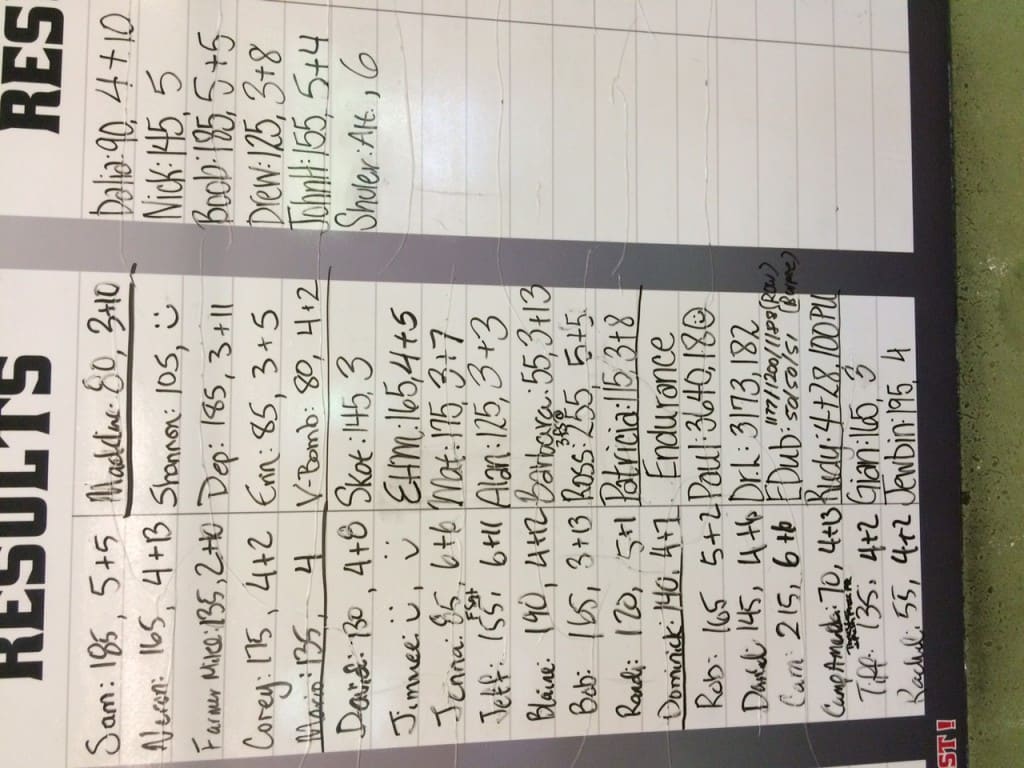 RESULTS
Sam: 185, 5+5
Neron: 165, 4+13
Farmer Mike: 135, 2+10
Corey: 175, 4+2
Mario: 135, 4
David: 130, 4+8
Jimmee: ü, ü
Jenna: 85, 6+6
Jeff: 155, 6+11
Blaine: 190, 4+2
Bob: 165, 3+13
Randi: 120, 5+1
Dominick: 140, 4+7
Rob: 165 5+2
Daniel: 145, 4+6
Cam: 215, 6+6
Camp Amanda: 70, 4+13
Tiff: 135, 4+2
Rachel: 55, 4+2
Maddie: 80, 3+10
Shannon: 105, ü
Dep: 185, 3+11
Erin: 85, 3+5
V-Bomb: 80, 4+2
Skot: 145, 3
Ethan: 165, 4+5
Mat: 175, 3+7
Alan: 125, 3+3
Barbara: 55, 3+13
Ross: 255 5+5
Patricia: 115, 3+8
Endurance
Paul: 3640, 180
Dr. L: 3173, 182
EDub: 1177/1200/1188 (Row)
50/50/51 (Burpee)
Rudy: 4+28, 100PU
Gian: 165, 3
Jewbin: 195, 4
RES
Dalia: 90, 4+10
Nick: 145, 5
Boob: 185, 5+5
Drew: 125, 3+8
John H: 155, 5+4
Shuler: Alt., 6
ST!